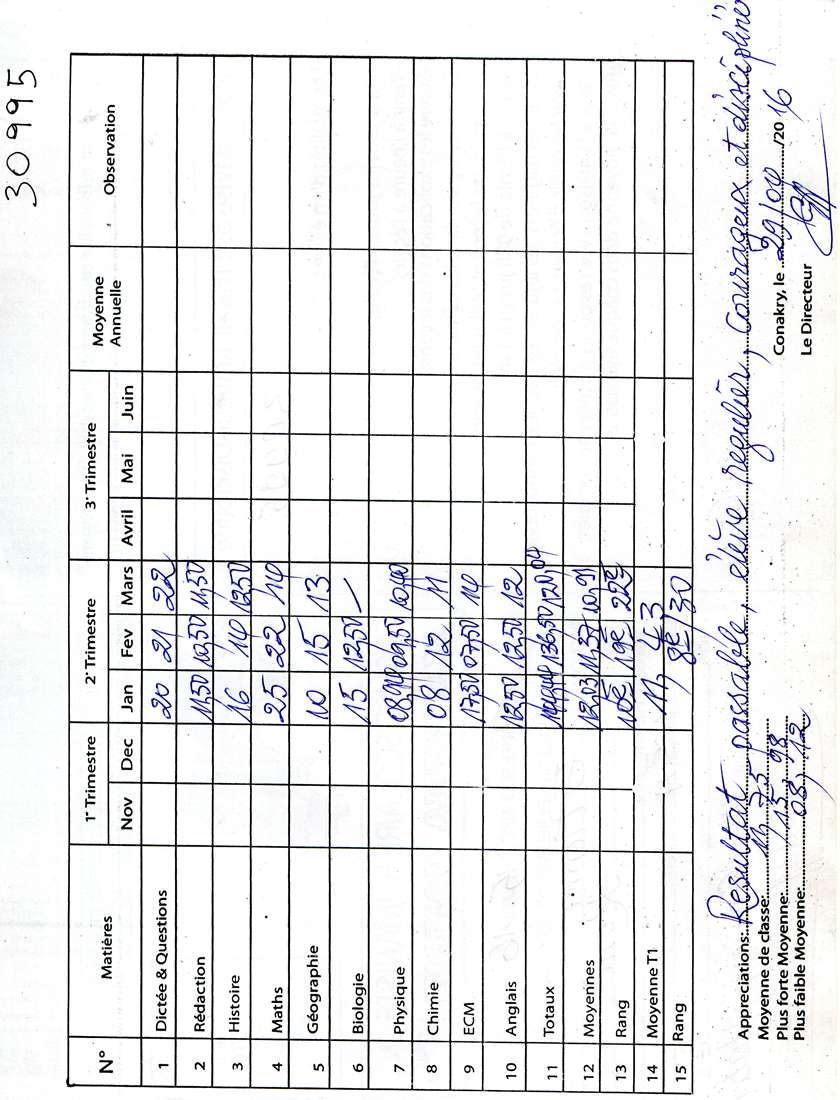 30995
N° Matières 1ᵉ Trimestre 2ᵉ Trimestre 3ᵉ Trimestre Moyenne Annuelle Observation
Nov Dec Jan Fev Mars Avril Mai Juin
1 Dictée & Questions 20 21 22
2 Rédaction 11,50 10,50 11,50
3 Histoire 16 14 12,50
4 Maths 25 22 14
5 Géographie 10 15 13
6 Biologie 15 12,50 –
7 Physique
8 Chimie 08 12 11
9 ECM 17,50 07,50 14
10 Anglais 12,50 12,50 12
11 Totaux 136,50 120,04
12 Moyennes 12,03 11,37 10,91
13 Rang 19e 22e
14 Moyenne T1 11,43
15 Rang 8e/30
Appreciations: Resultat passable, élève regulier, courageux et discipliné
Moyenne de classe: 11,75
Plus forte Moyenne: 15,98
Plus faible Moyenne: 08,12
Conakry, le 29/04/2016
Le Directeur